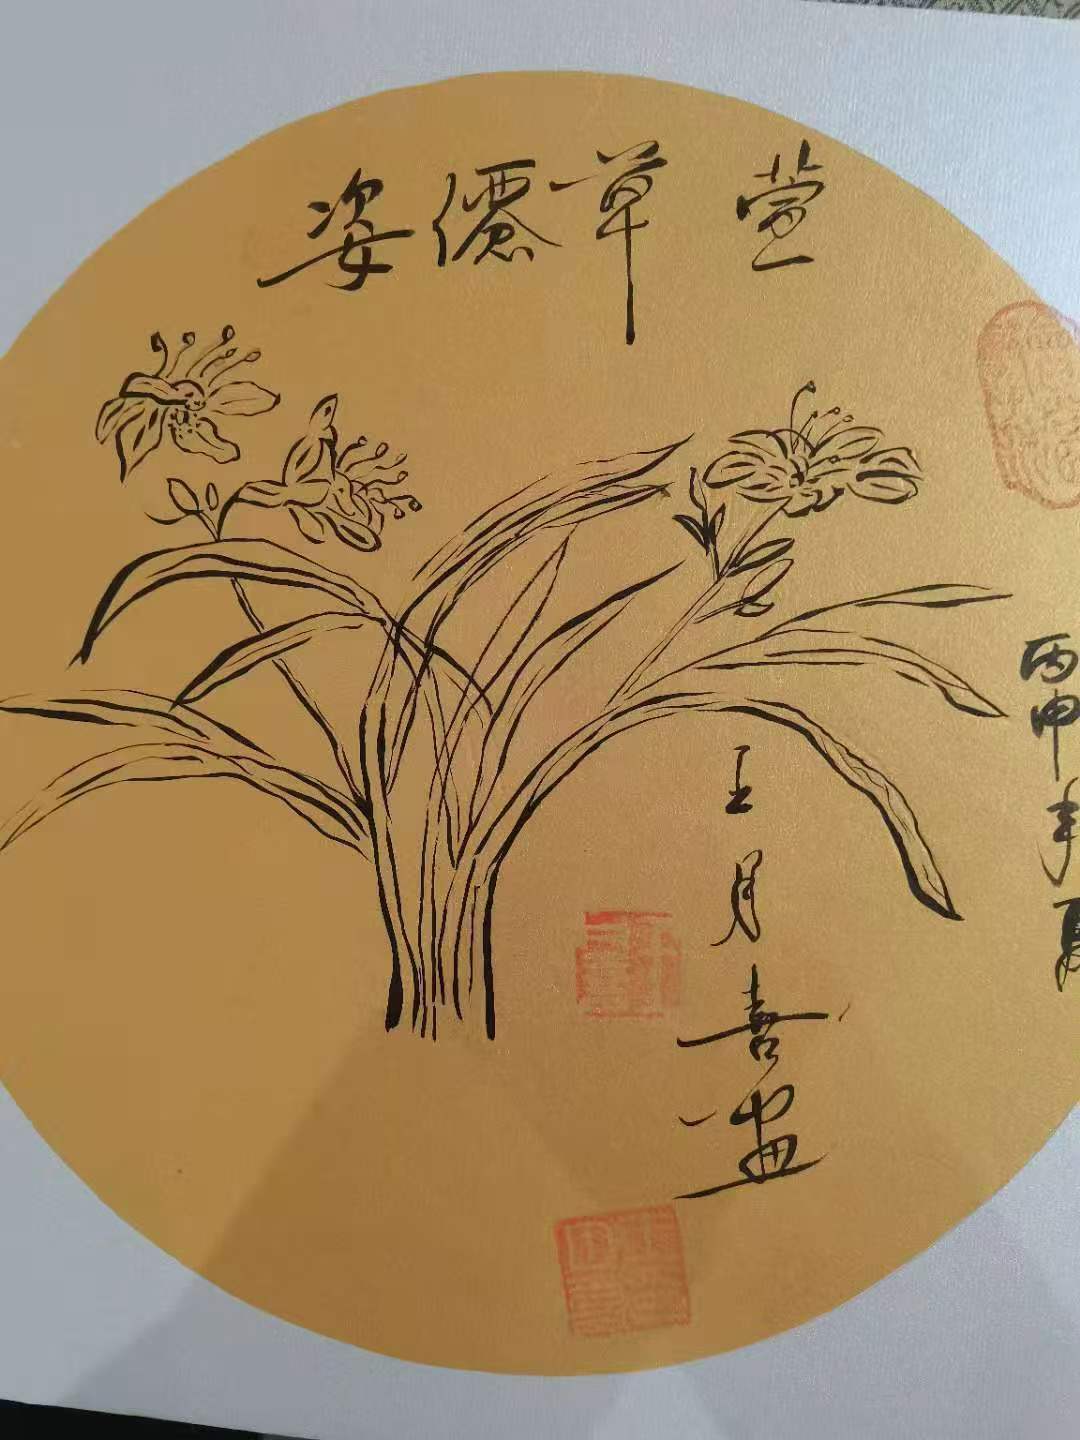 萱草僊姿
丙申年夏
王月喜畫